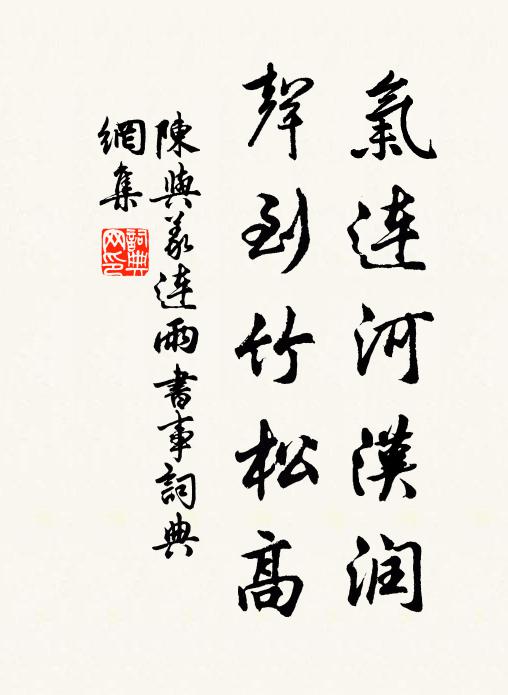 氣連河漢润
聲到竹松高
陳與義連雨書事詞典
網集
詞典
网印